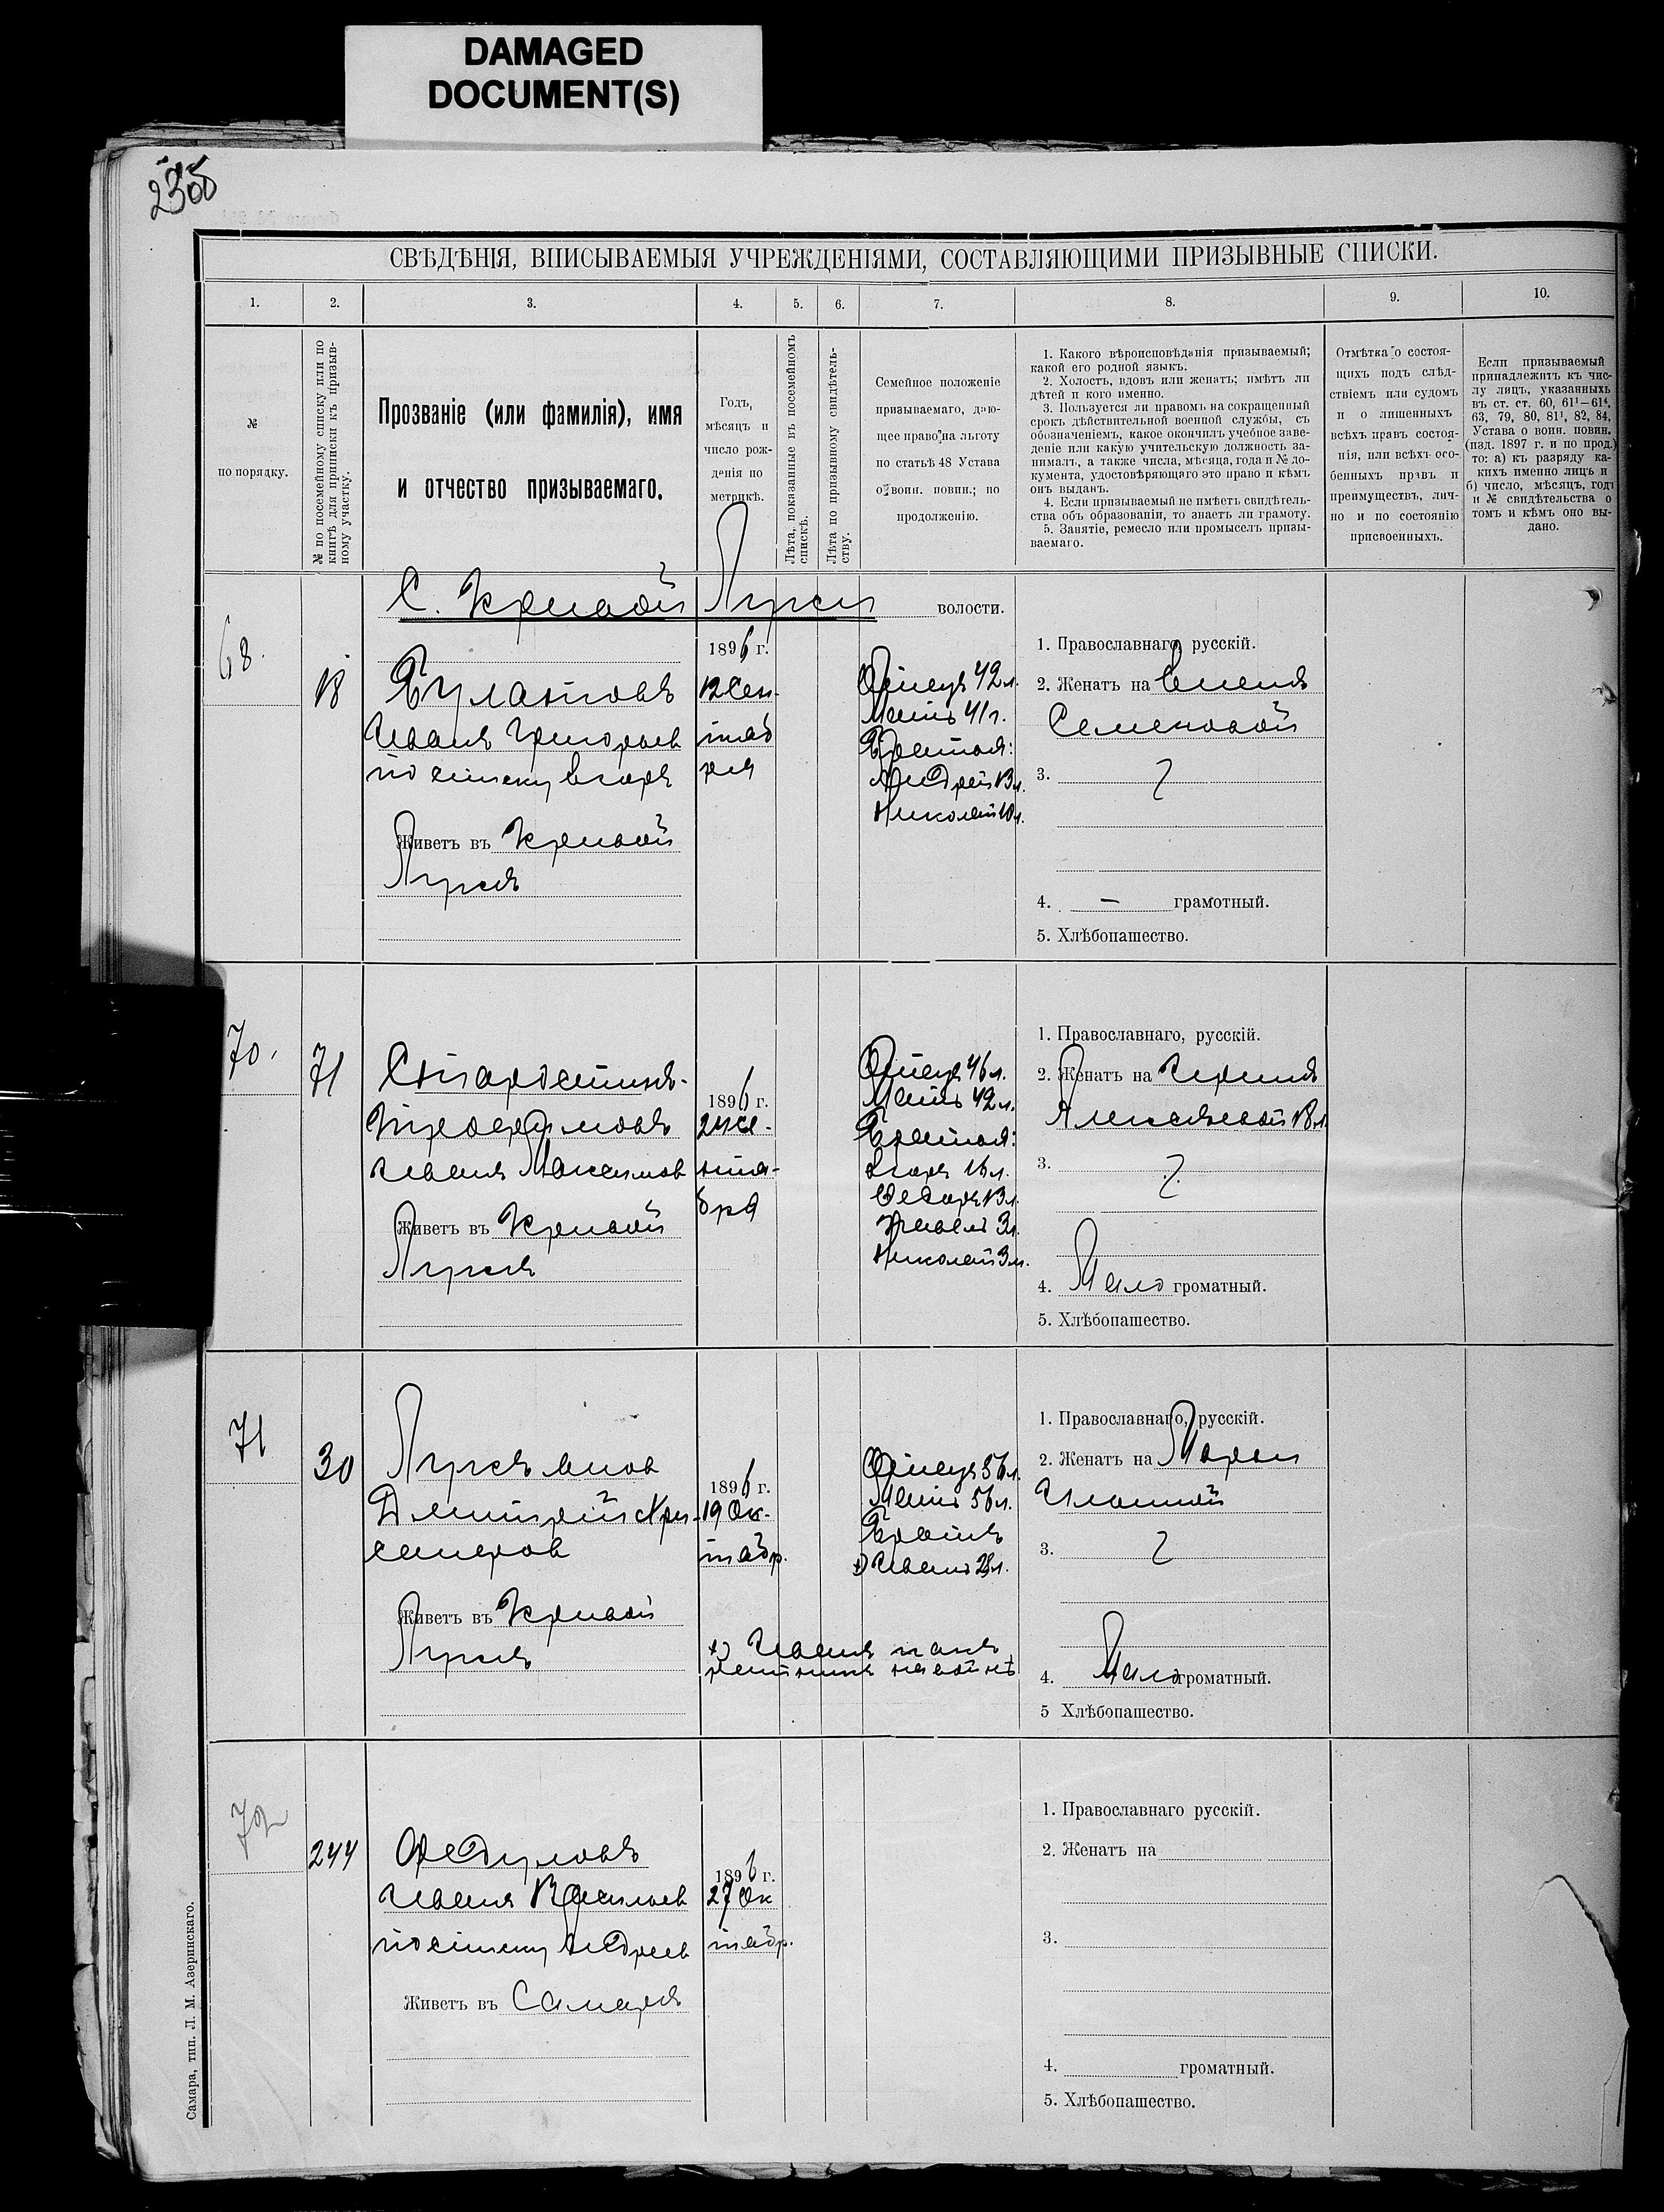 DAMAGED
DOCUMENT(S)
СВѢДѢНІЯ, ВПИСЫВАЕМЫЯ УЧРЕЖДЕНІЯМИ, СОСТАВЛЯЮЩИМИ ПРИЗЫВНЫЕ СПИСКИ.
1.
2.
3.
4.
5.
6.
7.
8.
9.
10.
№
по порядку.
№ по посемейному списку или по
книгѣ для приписки къ призыв-
ному участку.
Прозваніе (или фамилія), имя
и отчество призываемаго.
Годъ,
мѣсяцъ и
число рож-
денія по
метрикѣ.
Лѣта, показанные въ посемейномъ
спискѣ.
Лѣта по призывному свидѣтель-
ству.
Семейное положеніе
призываемаго, даю-
щее право на льготу
по статьѣ 48 Устава
о воин. повин.; по
продолженію.
1. Какого вѣроисповѣданія призываемый;
какой его родной языкъ.
2. Холостъ, вдовъ или женатъ; имѣтъ ли
дѣтей и кого именно.
3. Пользуется ли правомъ на сокращенный
срокъ дѣйствительной военной службы, съ
обозначеніемъ, какое окончилъ учебное заве-
деніе или какую учительскую должность за-
нималъ, а также числа, мѣсяца, года и № до-
кумента, удостовѣряющаго это право и кѣмъ
онъ выданъ.
4. Если призываемый не имѣетъ свидѣтель-
ства объ образованіи, то знаетъ ли грамоту.
5. Занятіе, ремесло или промыселъ призы-
ваемаго.
Отмѣтка о состоя-
щихъ подъ слѣд-
ствіемъ или судомъ
и о лишенныхъ
всѣхъ правъ состоя-
нія, или всѣхъ осо-
бенныхъ правъ и
преимуществъ, лич-
но и по состоянію
присвоенныхъ.
Если призываемый
принадлежитъ къ чис-
лу лицъ, указанныхъ
въ ст. ст. 60, 61¹—61⁴,
63, 79, 80, 81¹, 82, 84,
Устава о воин. повин.
(изд. 1897 г. и по прод.)
то: а) къ разряду ка-
кихъ именно лицъ и
б) число, мѣсяцъ, годъ
и № свидѣтельства о
томъ и кѣмъ оно вы-
дано.
С. Кривой Луки волости.
68.
18
Булатовъ
Иванъ Григорьев
по списку Егоръ
Живетъ въ Кривой
Лукѣ
1896 г.
12 Сен-
тяб
ря
Отецъ 42 л.
Мать 41 г.
Братья:
Андрей 13 л.
Николай 10 л.
1. Православнаго, русскій.
2. Женатъ на Еленѣ
Семеновой
3.
4. — грамотный.
5. Хлѣбопашество.
70.
71
Старостинъ-
Трофимовъ
Иванъ Максимов
Живетъ въ Кривой
Лукѣ
1896 г.
24 Се-
нтя-
бря
Отецъ 46 л.
Мать 42 л.
Братья:
Егоръ 16 л.
Федоръ 13 л.
Павелъ 3 л.
Николай 3 м.
1. Православнаго, русскій.
2. Женатъ на Иринѣ
Алексѣевой 18 л.
3.
4. Мало громатный.
5. Хлѣбопашество.
71
30
Лукьянов
Дмитрій Хри-
санфов
Живетъ въ Кривой
Лукѣ
1896 г.
19 Ок-
тябр.
Отецъ 56 л.
Мать 56 л.
Братъ
х) Иванъ 23 л.
х) Иванъ какъ
ратникъ на войнѣ
1. Православнаго, русскій.
2. Женатъ на Марьи
Ильиной
3.
4. Мало громатный.
5 Хлѣбопашество.
72
244
Федуловъ
Иванъ Васильев
по списку Андреев
Живетъ въ Самарѣ
1896 г.
27 Ок
тябр.
1. Православнаго русскій.
2. Женатъ на
3.
4. громатный.
5. Хлѣбопашество.
Самара, тип. Л. М. Азеринскаго.